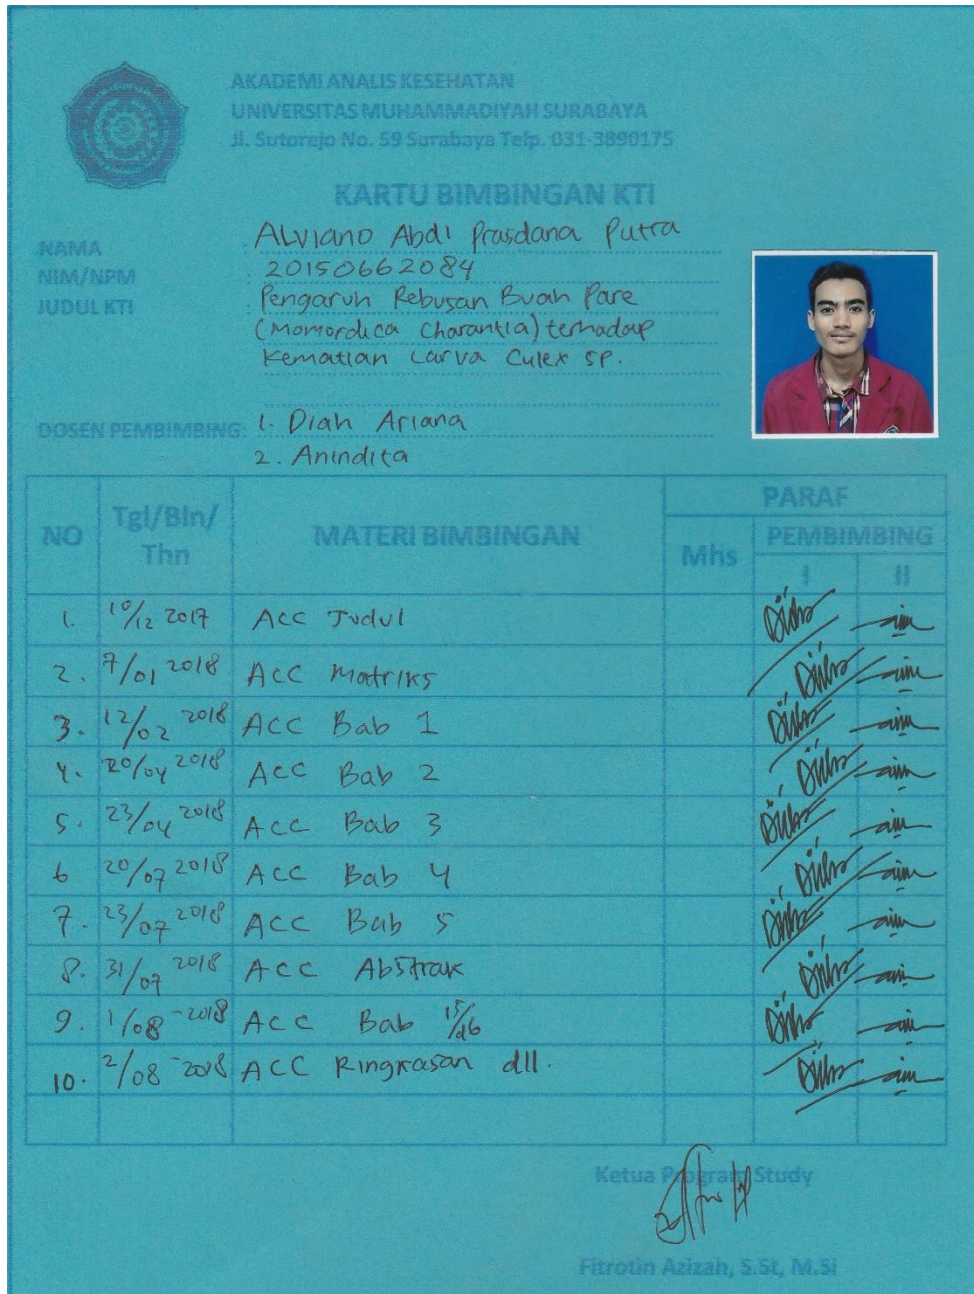 AKADEMI ANALIS KESEHATAN
UNIVERSITAS MUHAMMADIYAH SURABAYA
Jl. Sutorejo No. 59 Surabaya Telp. 031-3890175
KARTU BIMBINGAN KTI
NAMA : Alviano Abdi Prasdana Putra
NIM/NPM : 20150662084
JUDUL KTI : Pengaruh Rebusan Buah Pare
(Momordica Charantia) terhadap
Kematian Larva Culex sp.
DOSEN PEMBIMBING: 1. Diah Ariana
2. Anindita
NO Tgl/Bln/Thn MATERI BIMBINGAN PARAF
Mhs PEMBIMBING
I II
1. 10/12 2017 ACC Judul
2. 7/01 2018 ACC Matriks
3. 12/02 2018 ACC Bab 1
4. 20/04 2018 ACC Bab 2
5. 23/04 2018 ACC Bab 3
6 20/07 2018 ACC Bab 4
7. 23/07 2018 ACC Bab 5
8. 31/07 2018 ACC Abstrak
9. 1/08 - 2018 ACC Bab
10. 2/08 - 2018 ACC Ringkasan dll.
Ketua Program Study
Fitrotin Azizah, S.St, M.Si